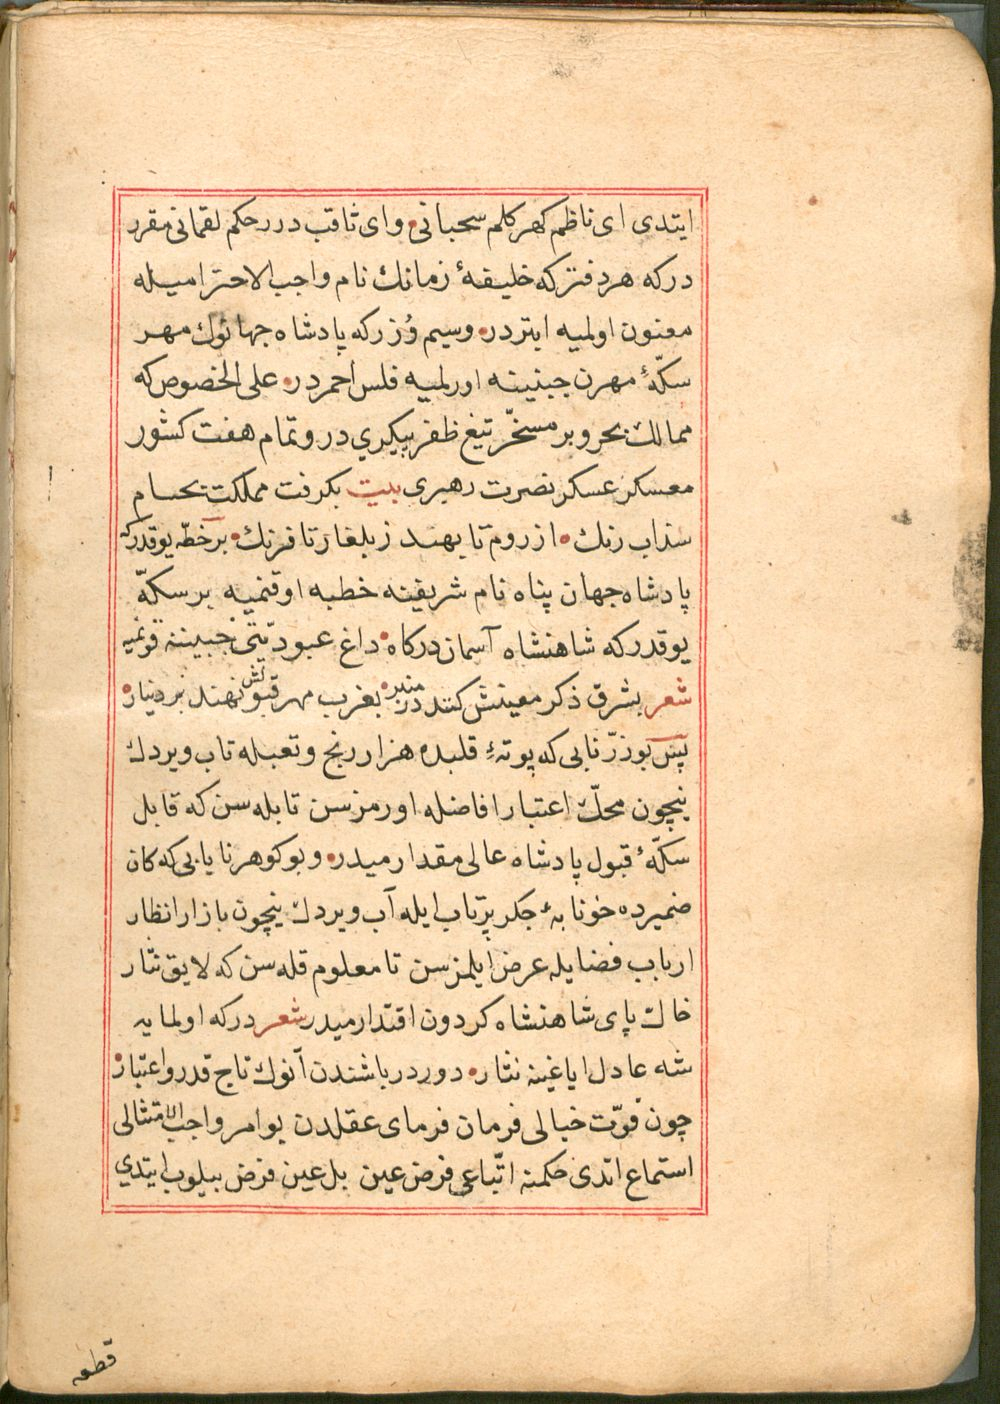 ایتدی ای ناظم کهر کلم سحبانی و ای ثاقب درر حکم لقمانی مقرر
درکه هر دفتر که خلیفهٔ زمانك نام واجب الاحترامیله
معنون اولمیه ابتردر وسیم وزر که پادشاه جهانوك مهر
سکّهٔ مهرن جبنینه اورلمیه فلس احمردر علی الخصوص که
ممالك بحر و بر مسخّر تیغ ظفر پیکری در و تمام هفت کشور
معسکر عسکر نصرت رهبری بیت بکرفت مملکت بحسام
سذاب رنك از روم تا بهند ز بلغار تا فرنك بر خطّه یوقدرکه
پادشاه جهان پناه نام شریفنه خطبه اوقنمیه بر سکّه
یوقدرکه شاهنشاه آسمان درکاه داغ عبودیّتی جبیننه قونمیه
شعر بشرق ذکر معینش کنند در منبر بغرب مهر قبولش نهند بر دینار
پس بو زرّ نابی که پوتهٔ قلبده هزار رنج و تعبله تاب ویردك
نیچون محكّ اعتبار افاضله اورمزسن تا بله سن که قابل
سکّهٔ قبول پادشاه عالی مقدارمیدر و بو کوهر نایابی که کان
ضمیرده خونابهٔ جکر پرتاب ایله آب ویردك نیچون بازار انظار
ارباب فضایله عرض ایلمزسن تا معلوم قله سن که لایق نثار
خاك پای شاهنشاه کردون اقتدارمیدر شعر درکه اولمایه
شه عادل ایاغینه نثار دوردر باشندن آنوك تاج قدر و اعتبار
چون قوّت خیالی فرمان فرمای عقلدن بو امر واجب الامتثالی
استماع اتدی حکمنه اتّباعی فرض عین بل عین فرض بیلوب ایتدی
قطعه